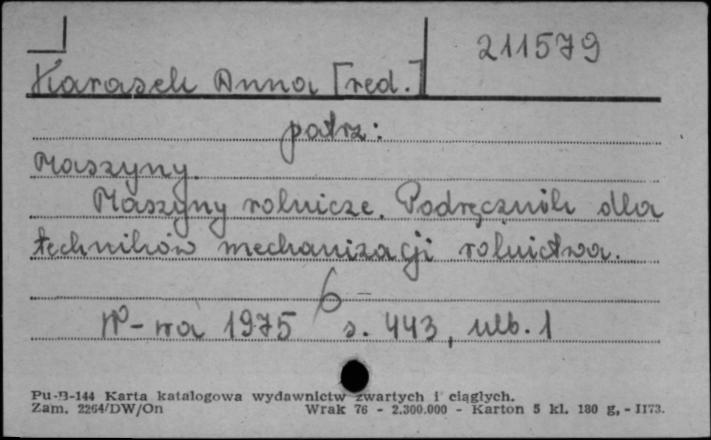 211579
Karasek Anna [red.]
patrz:
Maszyny.
Maszyny rolnicze. Podręcznik dla
techników mechanizacji rolnictwa.
6-
W-wa 1975 s. 443, nlb. 1
Pu-B-144 Karta katalogowa wydawnictw zwartych i ciągłych.
Zam. 2264/DW/On Wrak 76 - 2.300.000 - Karton 5 kl. 180 g, - II73.